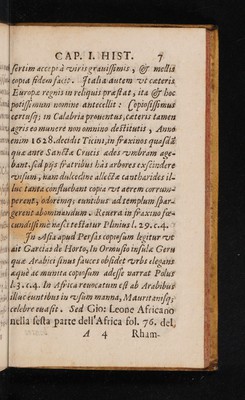 CAP. I. HIST. 7
fertim accepi à viris grauissimis, & mellis
copia fidem facit. Italia autem vt cateris
Europæ regnis in reliquis præstat, ita & hoc
potissimum nomine antecellit: Copiosissimus
certusq; in Calabria prouentus, cateris tamen
agris eo munere non omnino destitutis, Anno
enim 1628. decidit Ticini, in fraxinos quasdā
quæ ante Sanctæ Crucis ædes vmbram age-
bant, sed pijs fratribus has arbores exscindere
visum, nam dulcedine allectæ cantharides il-
luc tanta confluebant copia vt aerem corrum-
perent, odorimq; euntibus ad templum spar-
gerent abominandum. Reuera in fraxino foe-
cundissime nasci testatur Plinius l. 29. c. 4.
In Asia apud Persas copiosum legitur vt
ex Garcia di Horto, In Ormusio insula Geru
quæ Arabici sinus fauces obsidet vrbs elegans
aquè ac munita copiosum adesse narrat Polus
l. 3. c. 4. In Africa reuocatum est ab Arabibus
illuc euntibus in vsum manna, Mauritanisq;
celebre euasit. Sed Gio: Leone Africano
nella sesta parte dell'Africa fol. 76. del,
A 4 Rham-